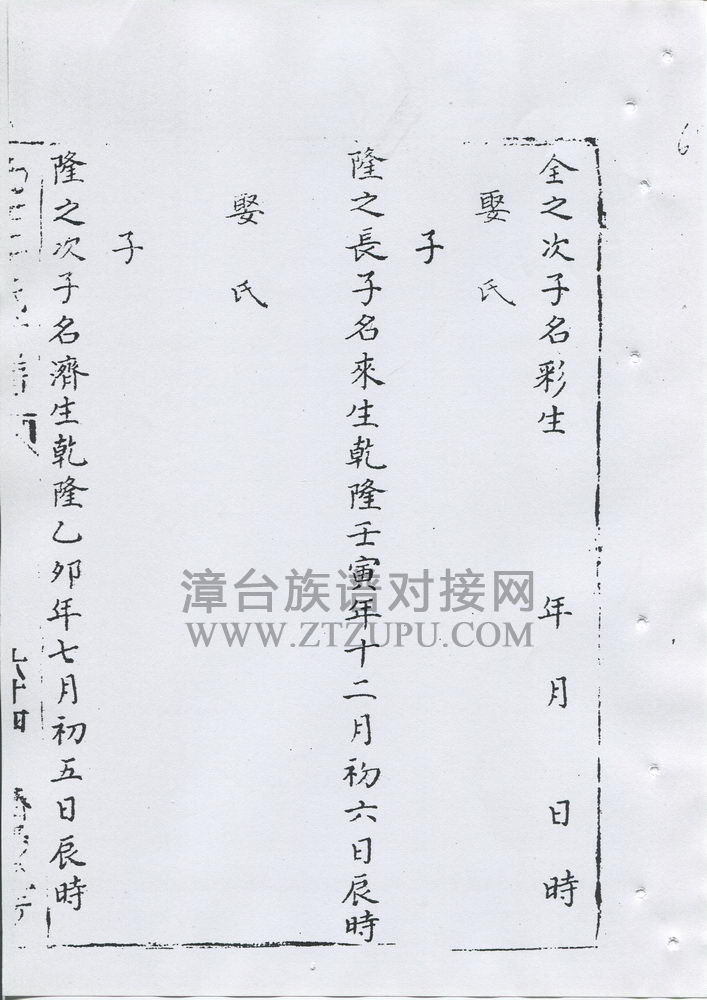 全之次子名彩生 年 月 日 時
娶 氏
子
隆之長子名來生乾隆壬寅年十二月初六日辰時
娶 氏
子
隆之次子名濟生乾隆乙夘年七月初五日辰時
漳台族谱对接网
WWW.ZTZUPU.COM